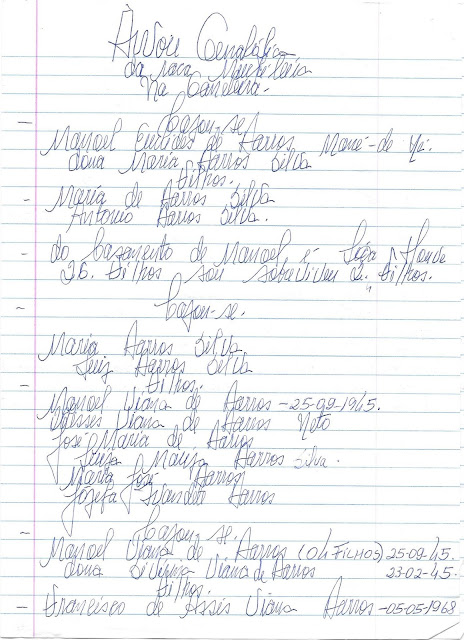 Árvou Genalógica
da raca
Na Candeeira.
Casou-se
Manoel Euclides de Barros Mané-de Yá.
dona Maria Barros Silva
filhos.
Maria de Barros Silva
Antonio Barros Silva.
do casamento de Manoel e houve
26. filhos só sobreviveu 2. filhos.
Casou-se.
Maria Barros Silva
Luiz Barros Silva
filhos.
Manoel Viana de Barros - 25-09-1945.
Ulisses Viana de Barros Neto
José Maria de Barros
Luiza Barros Silva.
Maria José Barros
Jozefa Barros
Casou-se.
Manoel Viana de Barros (04 FILHOS) 25-09-45.
dona Viana de Barros 23-02-45.
filhos.
Francisco de Assis Viana Barros - 05-05-1968